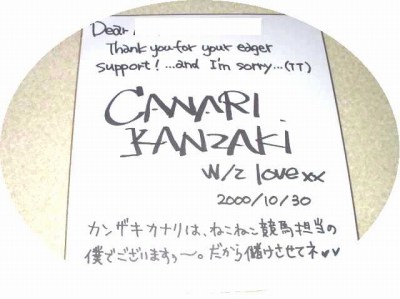 Dear
Thank you for your eager
support! ...and I'm sorry...(TT)
CANARI
KANZAKI
W/z love xx
2000/10/30
カンザキカナリは、ねこねこ競馬担当の
僕でございますぅ〜。だから儲けさせてネ♥♥